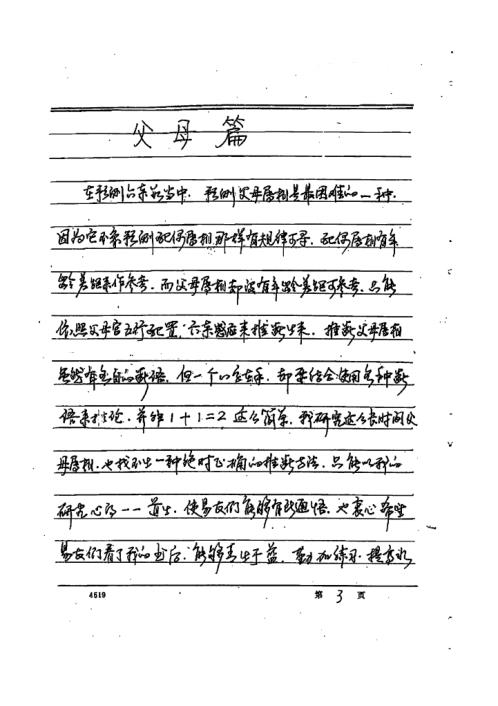 父母篇
在预测六亲的当中，预测父母属相是最困难的一种，
因为它不象预测配偶属相那样有规律可寻，配偶属相有年
龄差距来作参考，而父母属相却没有年龄差距可参考，只能
依照父母宫五行配置，六亲来推断出来，推断父母属相
虽然有各自的断语，但一个八字在手，却要结合使用各种断
语来推论，并非1+1=2这么简单，我研究这么长时间父
母属相，也找不出一种绝对正确的推断方法，只能以我的
研究心得一一道出，使易友们能够有所通悟，也衷心希望
易友们看了我的书后，能够青出于蓝，勤加练习，提高水
4619
第3页